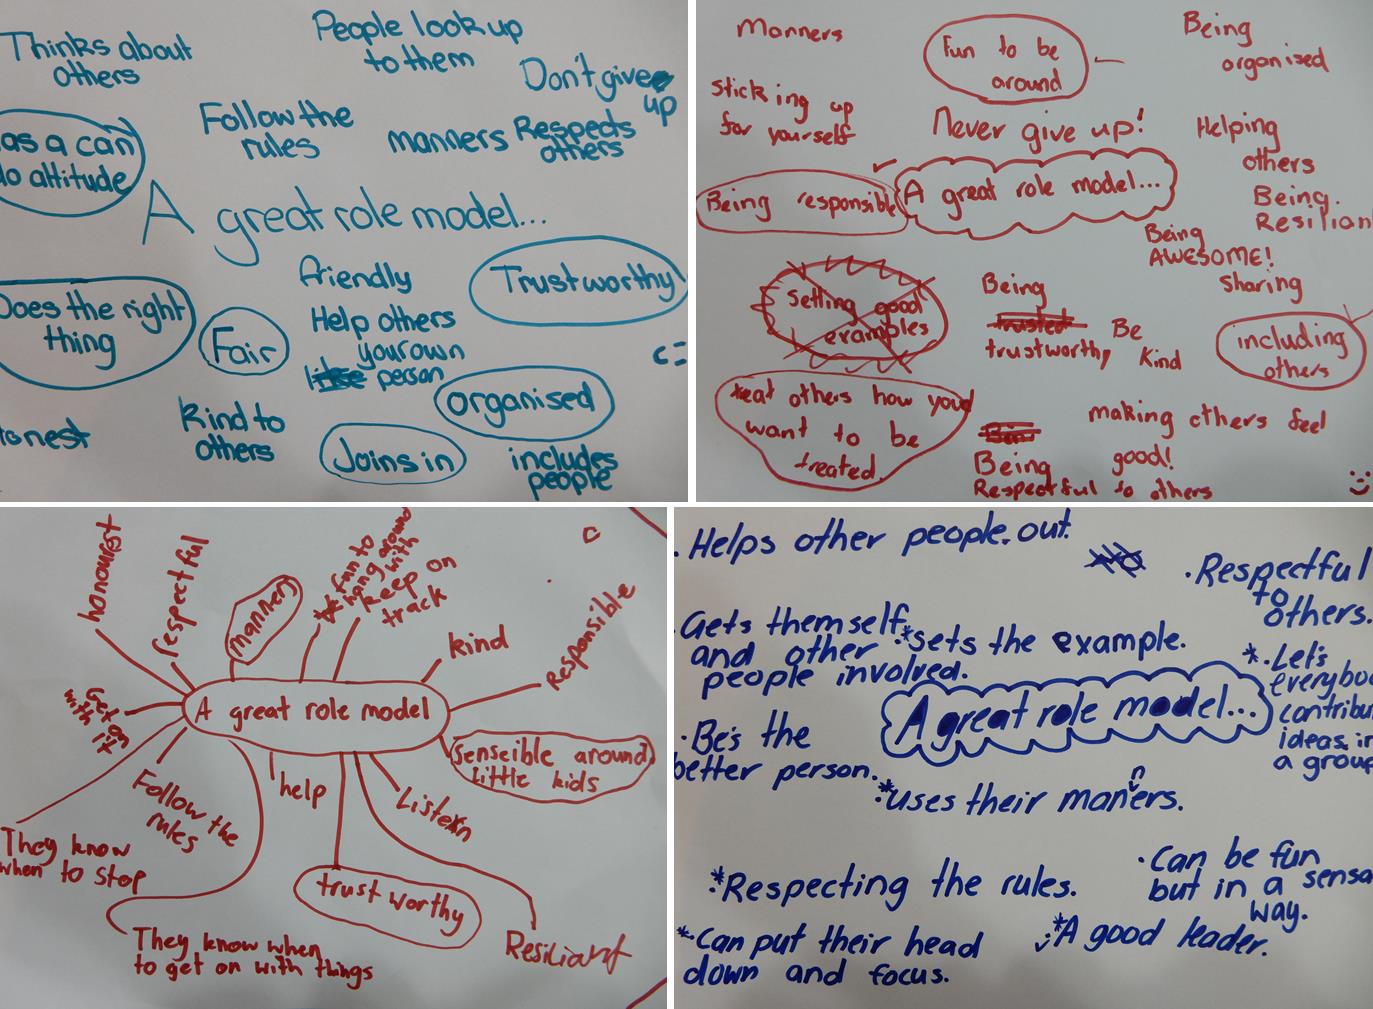 Thinks about
others
People look up
to them
Don't give
up
Follow the
rules
manners
Respects
others
as a can
do attitude
A great role model...
friendly
Trustworthy
Does the right
thing
Fair
Help others
your own
person
organised
Honest
Kind to
others
Joins in
includes
people
Manners
Fun to be
around
Being
organised
sticking up
for yourself
Never give up!
Helping
others
Being responsible
A great role model...
Being
Resiliant
Being
AWESOME!
sharing
Setting good
examples
Being
trusted
trustworthy
Be
Kind
including
others
treat others how you'd
want to be
treated.
making others feel
good!
Being
Respectful to others
honourest
respectful
manners
fun to
hang around
with
keep on
track
kind
Responsible
A great role model
Get on
with it
senseible around
little kids
Follow the
rules
help
Listen
They know
when to stop
trust worthy
They know when
to get on with things
Resiliant
· Helps other people out.
· Respectful
to
others.
· Gets themself
and other
people involved.
* sets the example.
* · Let's
everybod
contribu
ideas in
a group
A great role model...
· Be's the
better person.
* uses their manners.
* Respecting the rules.
· Can be fun
but in a sensa
way.
* · Can put their head
down and focus.
* A good leader.